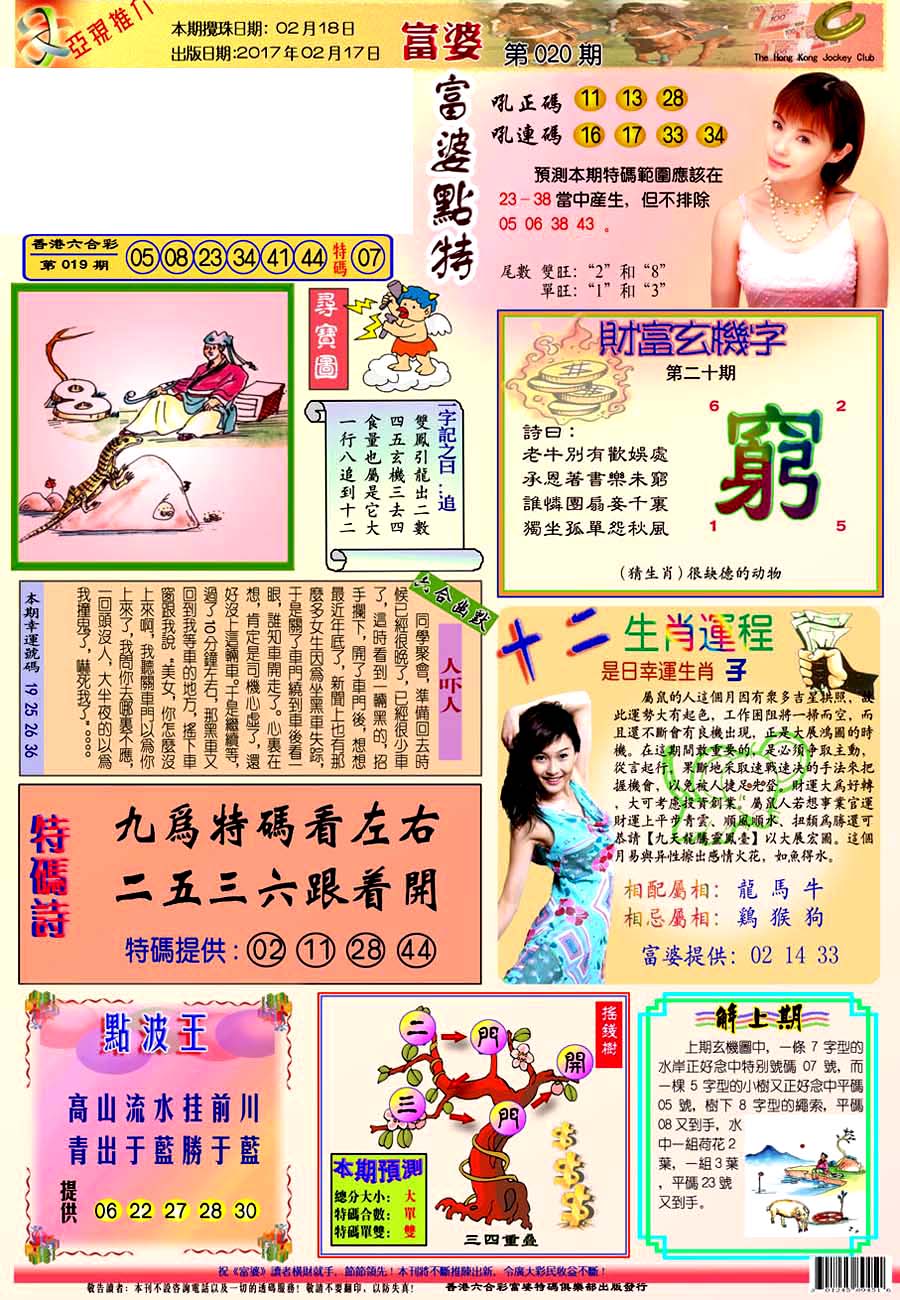 亞視推介
本期攪珠日期: 02月18日
出版日期:2017年02月17日
富婆
第020期
The Hong Kong Jockey Club
富婆點特
吼正碼 11 13 28
吼連碼 16 17 33 34
預測本期特碼範圍應該在
23－38當中産生，但不排除
05 06 38 43 。
尾數 雙旺：“2”和“8”
單旺：“1”和“3”
香港六合彩
第 019 期
05 08 23 34 41 44 特碼 07
尋寶圖
一字記之曰：追
雙鳳引龍出二數
四五玄機三去四
食量也屬是它大
一行八追到十二
財富玄機字
第二十期
詩曰：
老牛別有歡娛處
承恩著書樂未窮
誰憐團扇妾千裏
獨坐孤單怨秋風
6 2
窮
1 5
(猜生肖)很缺德的动物
六合幽默
人吓人
同學聚會，準備回去時
候已經很晚了，已經很少車
了，這時看到一輛黑的，招
手攔下，開了車門後，想想
最近年底了，新聞上也有那
麼多女生因為坐黑車失踪，
于是關了車門繞到車後看一
眼，誰知車開走了。心裏在
想，肯定是司機心虛了，還
好沒上這輛車，于是繼續等，
過了10分鐘左右，那黑車又
回到我等車的地方。搖下車
窗跟我說“美女，你怎麼沒
上來啊，我聽關車門以為你
上來了，我問你去哪裏不應，
一回頭沒人，大半夜的以為
我撞鬼了，嚇死我了”。。。。
本期幸運號碼 19 25 26 36
十二生肖運程
是日幸運生肖 子
屬鼠的人這個月因有衆多吉星拱照，
此運勢大有起色，工作困阻將一掃而空，而
且還不斷會有良機出現，正是大展鴻圖的時
機。在這期間最重要的，是必須爭取主動，
從言起行，果斷地采取速戰速决的手法來把
握機會，以免被人捷足先登，財運大爲好轉
，大可考慮投資創業。屬鼠人若想事業官運
財運上平步青雲、順風順水、扭頹爲勝還可
恭請【九天龍騰靈鳳臺】以大展宏圖。這個
月易與异性擦出感情火花，如魚得水。
相配屬相：龍 馬 牛
相忌屬相：鷄 猴 狗
富婆提供：02 14 33
特碼詩
九爲特碼看左右
二五三六跟着開
特碼提供：02 11 28 44
點波王
高山流水挂前川
青出于藍勝于藍
提供 06 22 27 28 30
搖錢樹
二 門 開
三 門
本期預測
總分大小：大
特碼合數：單
特碼單雙：雙
三四重叠
解上期
上期玄機圖中，一條7字型的
水岸正好念中特別號碼07號，而
一棵5字型的小樹又正好念中平碼
05號，樹下8字型的繩索，平碼
08又到手，水
中一組荷花2
葉，一組3葉
，平碼23號
又到手。
祝《富婆》讀者橫財就手，節節領先！本刊將不斷推陳出新，令廣大彩民收益不斷！
敬告讀者：本刊不設咨詢電話以及一切的透碼服務！敬請不要翻印，以防失真！
香港六合彩富婆特碼俱樂部出版發行